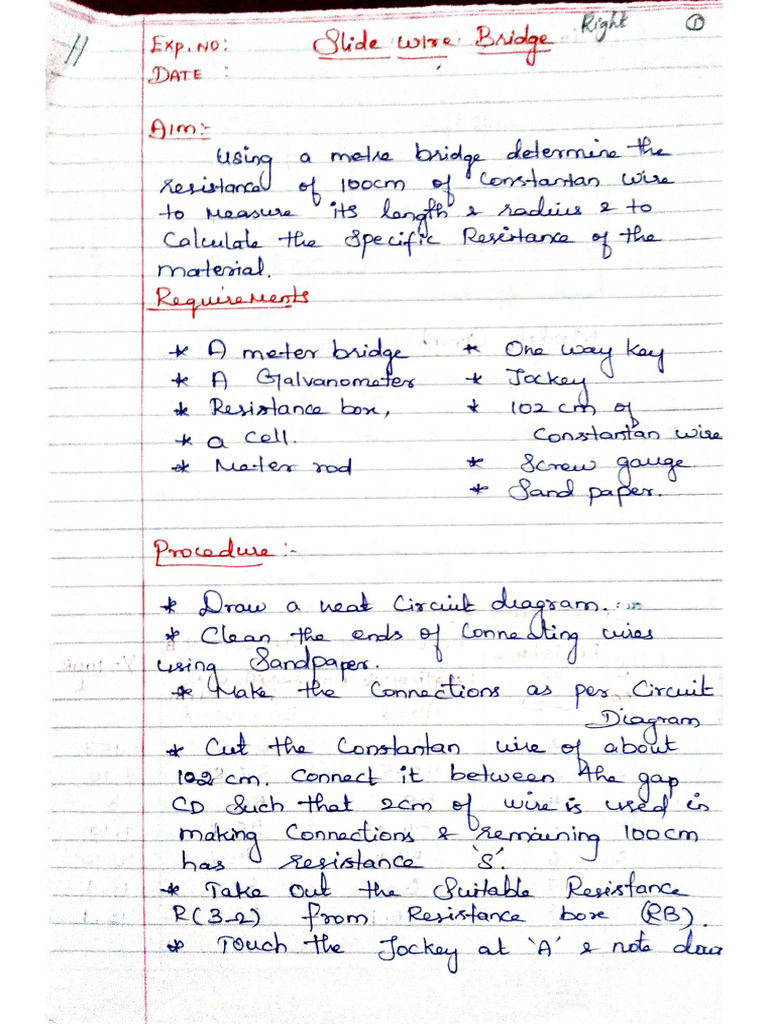 Right ①
EXP. NO: Slide wire Bridge
DATE :
Aim:-
Using a metre bridge determine the
resistance of 100cm of Constantan wire
to Measure its length & radius & to
Calculate the Specific Resistance of the
material.
Requirements
* A meter bridge * One way key
* A Galvanometer * Jockey
* Resistance box, * 102 cm of
* a cell. Constantan wire
* Meter rod * Screw gauge
* Sand paper.
Procedure :-
* Draw a neat Circuit diagram.
* Clean the ends of Connecting wires
using Sandpaper.
* Make the Connections as per Circuit
Diagram
* Cut the Constantan wire of about
102 cm. Connect it between the gap
CD Such that 2cm of wire is used in
making Connections & remaining 100cm
has resistance 'S'.
* Take out the Suitable Resistance
R(3-2) from Resistance box (RB).
* Touch the Jockey at 'A' & note down